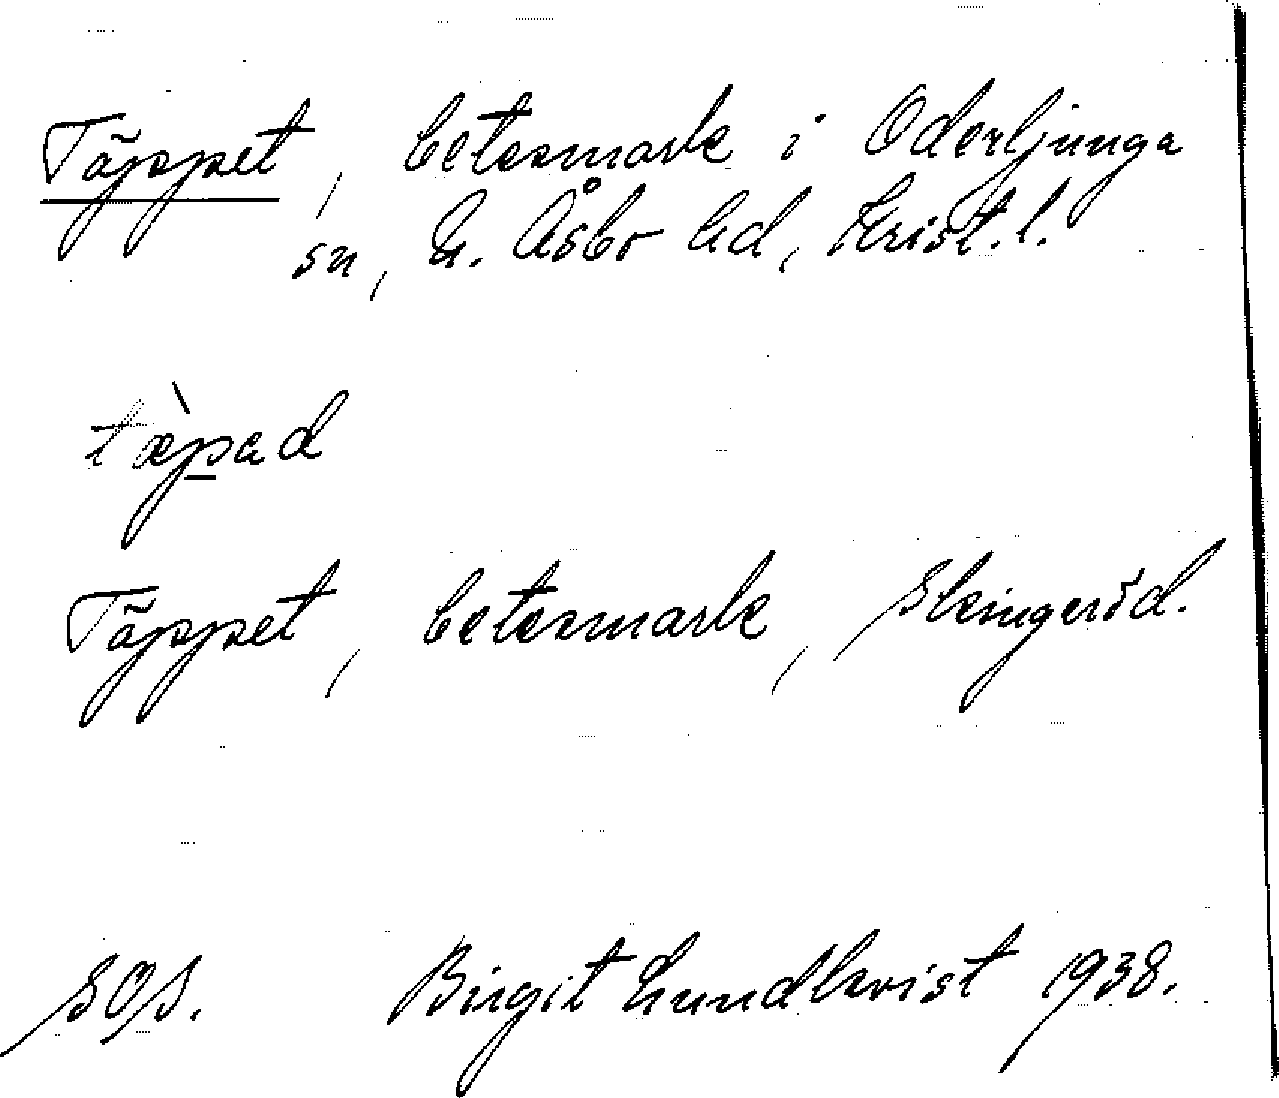 Täppet, betesmark i Oderljunga
sn, N. Åsbo hd, Krist. l.
tæ̀pad
Täppet, betesmark, Skingeröd.
SOS. Birgit Lundkvist 1938.